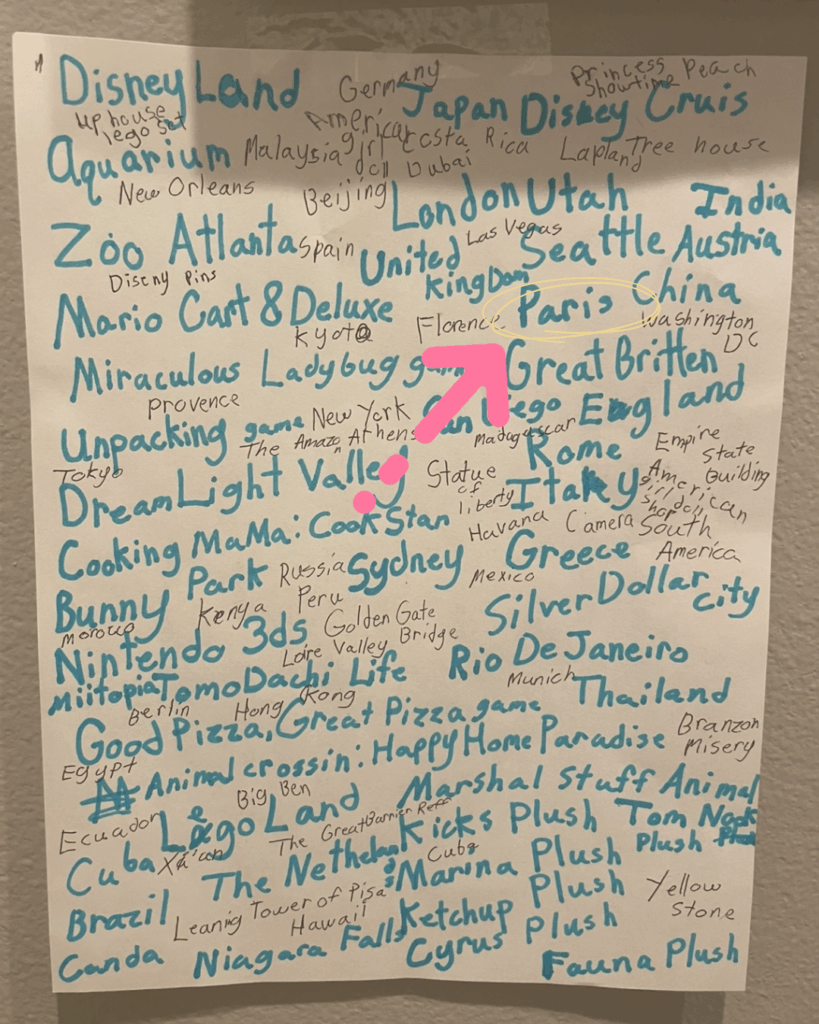 Princess Peach
Showtime
Germany
DisneyLand
Japan Disney Cruis
Up house
lego set
American
girl
doll
Costa Rica
Lapland
Tree house
Aquarium
Malaysia
Dubai
New Orleans
Beijing
London
Utah
India
Las Vegas
Zoo Atlanta
Spain
United
KingDom
Seattle
Austria
Diseny Pins
Paris
China
Mario Cart 8 Deluxe
Kyoto
Florence
Washington
DC
Miraculous Ladybug game
Great Britten
Provence
New York
San Diego
England
Unpacking game
The Amazon
Athens
Madagascar
Rome
Empire
State
Building
Tokyo
DreamLight Valley
Statue
of
liberty
Italy
American
girl doll
shop
Cooking MaMa: CookStan
Havana
Camera
South
America
Bunny Park
Russia
Sydney
Greece
Mexico
Morocco
Kenya
Peru
Silver Dollar
City
Nintendo 3ds
Golden Gate
Bridge
Loire Valley
Rio De Janeiro
Miitopia
TomoDachi Life
Munich
Thailand
Berlin
Hong Kong
Good Pizza, Great Pizza game
Branzon
Misery
Egypt
Animal crossin: Happy Home Paradise
Big Ben
Marshal Stuff Animal
Ecuador
Lego Land
The Great Barrier Reff
Kicks Plush
Tom Nook
Plush
Cuba
Xi'an
The Nethelands
Cuba
Marina Plush
Brazil
Leanig Tower of Pisa
Hawaii
Ketchup Plush
Yellow
Stone
Canda
Niagara Falls
Cyrus Plush
Fauna Plush